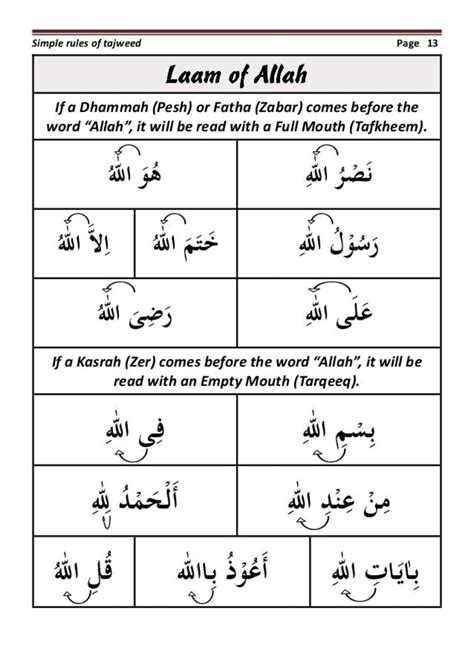 Simple rules of tajweed Page 13
Laam of Allah
If a Dhammah (Pesh) or Fatha (Zabar) comes before the
word “Allah”, it will be read with a Full Mouth (Tafkheem).
نَصْرُ اللهِ هُوَ اللهُ
رَسُوْلُ اللهِ خَتَمَ اللهُ اِلاَّ اللهُ
عَلَى اللهِ رَضِىَ اللهُ
If a Kasrah (Zer) comes before the word “Allah”, it will be
read with an Empty Mouth (Tarqeeq).
بِسْمِ اللهِ فِى اللهِ
مِنْ عِنْدِ اللهِ أَلْحَمْدُ لِلهِ
بِاٰيَاتِ اللهِ أَعُوْذُ بِاالله قُلِ اللهُ